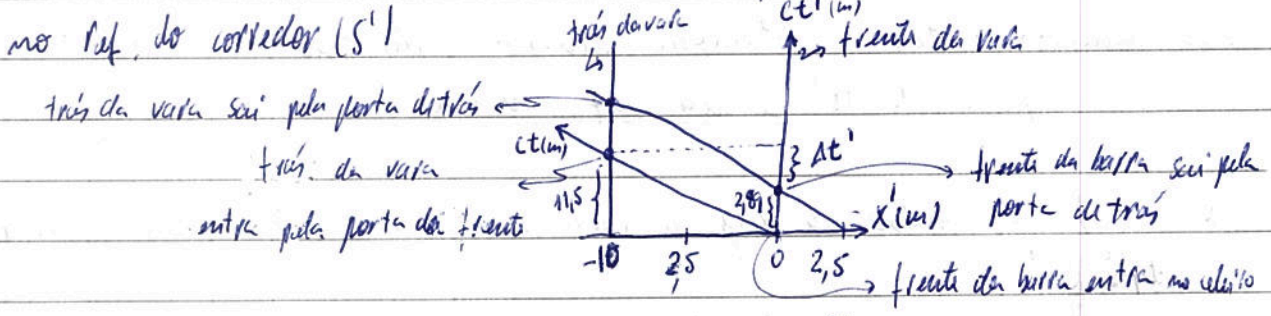 no ref. do corredor (S')
trás da vara
ct'(m)
frente da vara
trás da vara sai pela porta de trás
ct(m)
Δt'
trás da vara
entra pela porta da frente
11,5
2,89
frente da barra sai pela
porta de trás
x'(m)
-10
2,5
0
2,5
frente da barra entra no celeiro